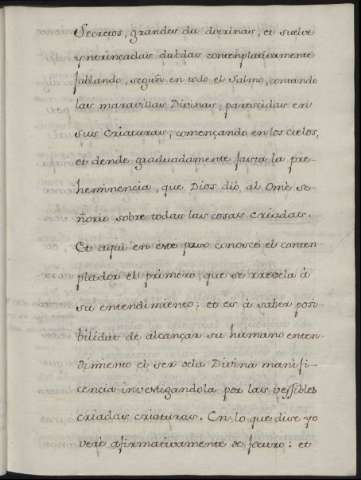 Secretos, grandes du dotrinas, et suelve
yntrincadas dubdas contemplativamente
fablando, segun en todo el Salmo, contando
las maravillas Divinas, parescidas en
sus criaturas, començando en los cielos,
et dende graduadamente fasta la pre-
heminencia, que Dios dió al Ome se-
ñorio sobre todas las cosas criadas.
Et aqui en este paso conosce el contem-
plador el primero, que se rrevela à
su entendimiento; et es à saber posi-
bilidat de alcançar su humano enten-
dimiento el ser dela Divina manifi-
cencia investigandola por las vessibles
criadas criaturas. En lo que dise yo
veré afirmativamente de futuro: et